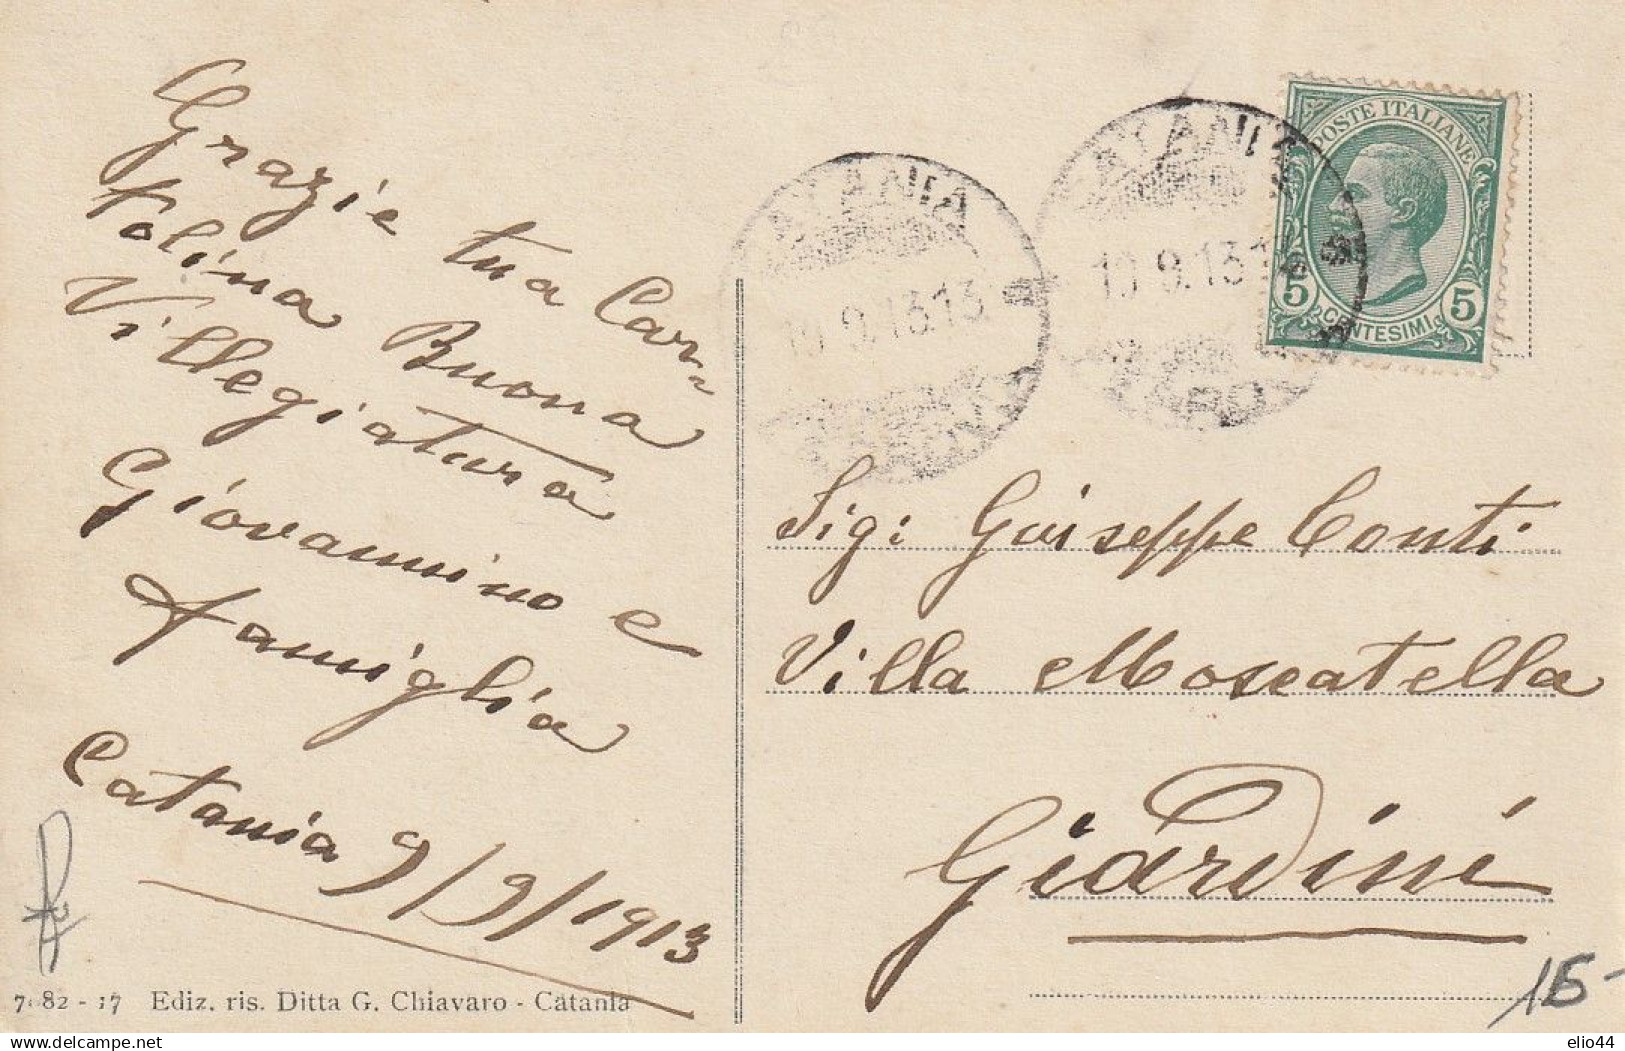 Grazie tua Car=
tolina Buona
Villegiatura
Giovannino e
famiglia
Catania 9/9/1913
Ediz. ris. Ditta G. Chiavaro - Catania
CATANIA
10.9.13 13
CATANIA
10.9.13 1
POSTE ITALIANE
5 CENTESIMI 5
Sig: Guiseppe Conti
Villa Moscatella
Giardini
15-
delcampe.net
elio44